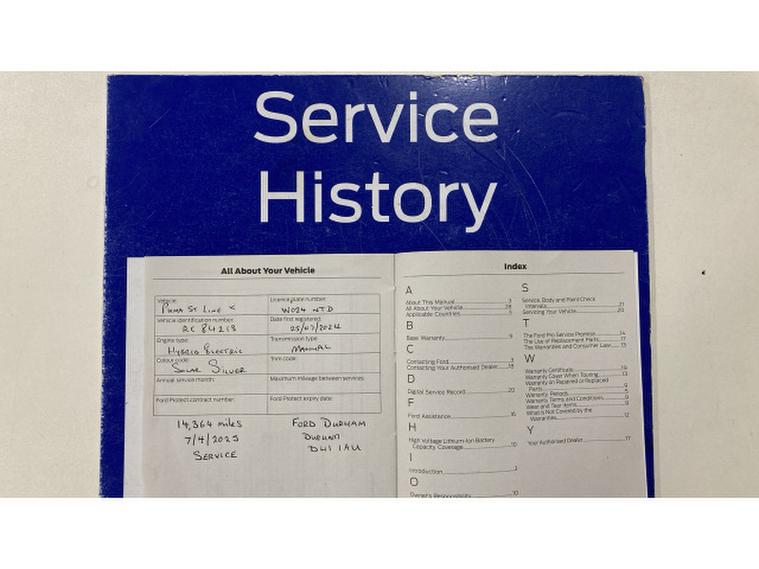 Service
History
All About Your Vehicle
Vehicle: Licence plate number:
Puma ST Line X WO24 NTD
Vehicle identification number: Date first registered:
RC 84213 25/07/2024
Engine type: Transmission type:
Hybrid Electric Manual
Colour code: Trim code:
Solar Silver
Annual service month: Maximum mileage between services:
Ford Protect contract number: Ford Protect expiry date:
14,364 miles Ford Durham
7/4/2025 Durham
Service DH1 1AU
Index
A
About This Manual 3
All About Your Vehicle 28
Applicable Countries
B
Base Warranty 9
C
Contacting Ford 3
Contacting Your Authorised Dealer 18
D
Digital Service Record 20
F
Ford Assistance 16
H
High Voltage Lithium-Ion Battery
Capacity Coverage 10
I
Introduction
O
Owner's Responsibility 10
S
Service, Body and Paint Check
Intervals 21
Servicing Your Vehicle 20
T
The Ford Pro Service Promise 14
The Use of Replacement Parts 17
The Warranties and Consumer Law 13
W
Warranty Certificate
Warranty Cover When Touring 13
Warranty on Repaired or Replaced
Parts 9
Warranty Periods
Warranty Terms and Conditions
Wear and Tear Items
What is Not Covered by the
Warranties 12
Y
Your Authorised Dealer 17